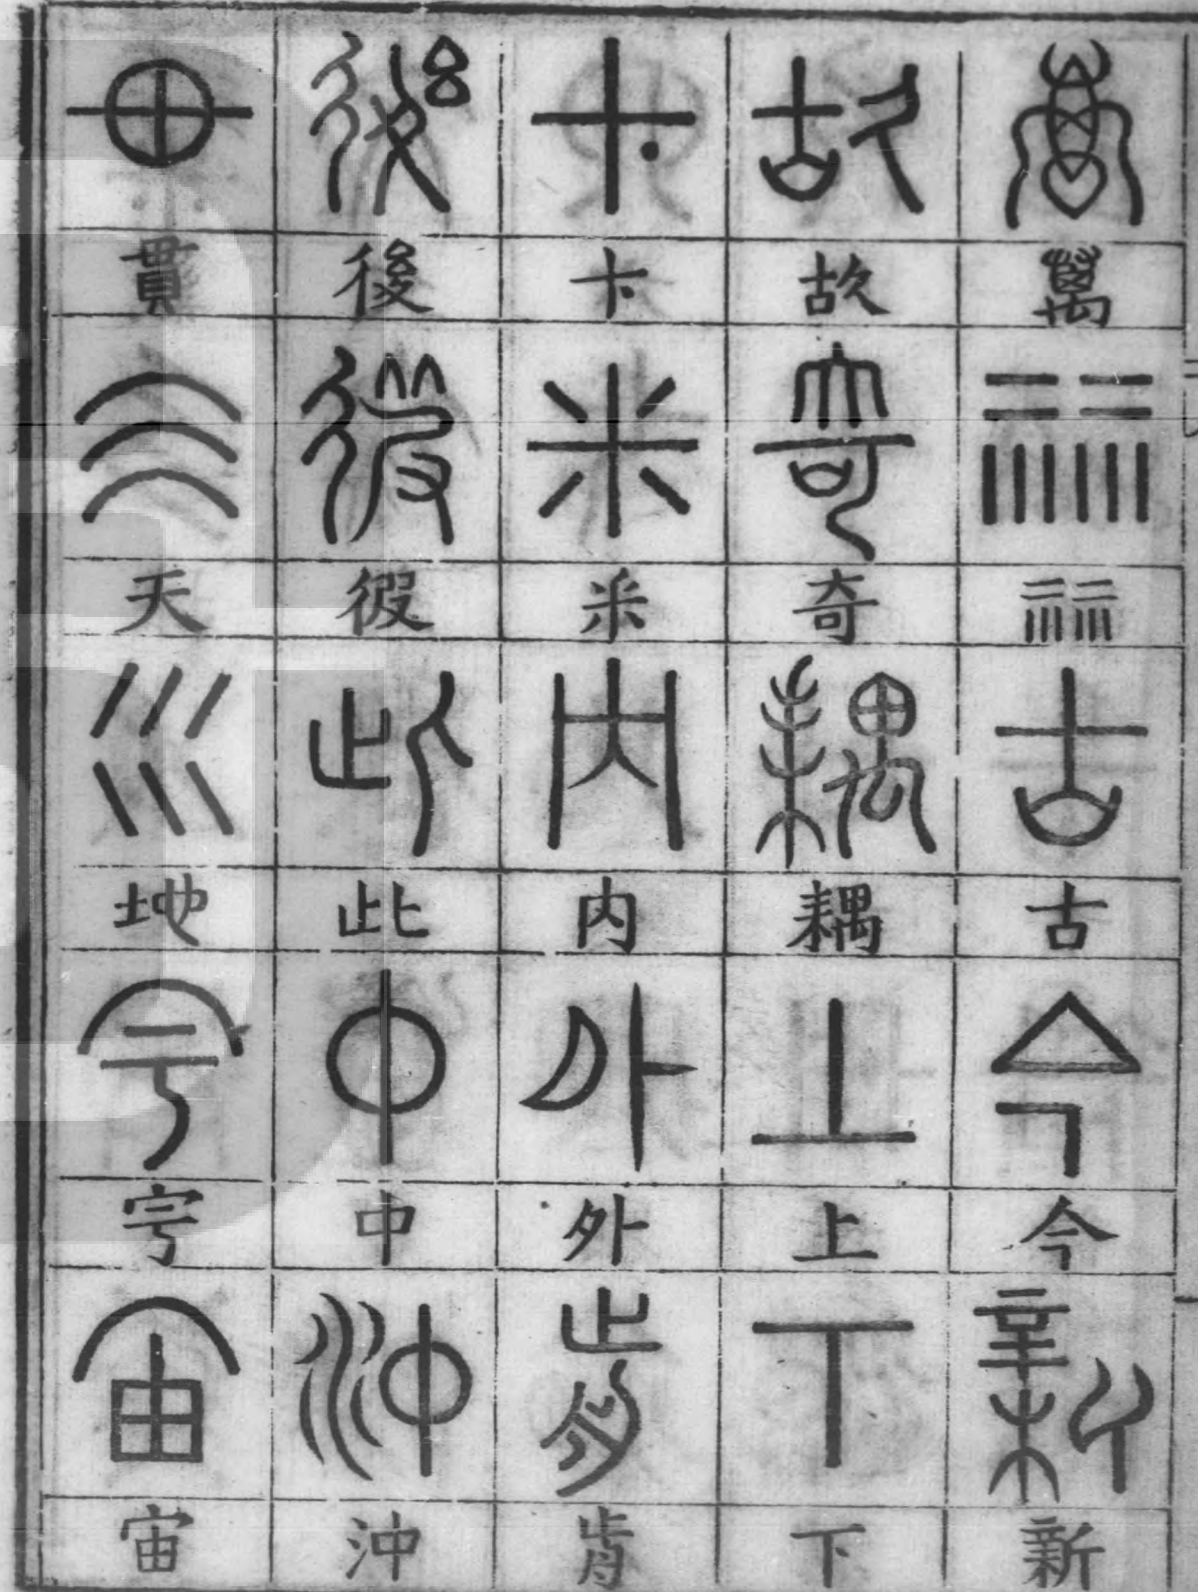 萬
𥘅
古
今
新
故
奇
耦
上
下
卜
米
内
外
肯
後
彶
此
中
沖
貫
天
地
宇
宙